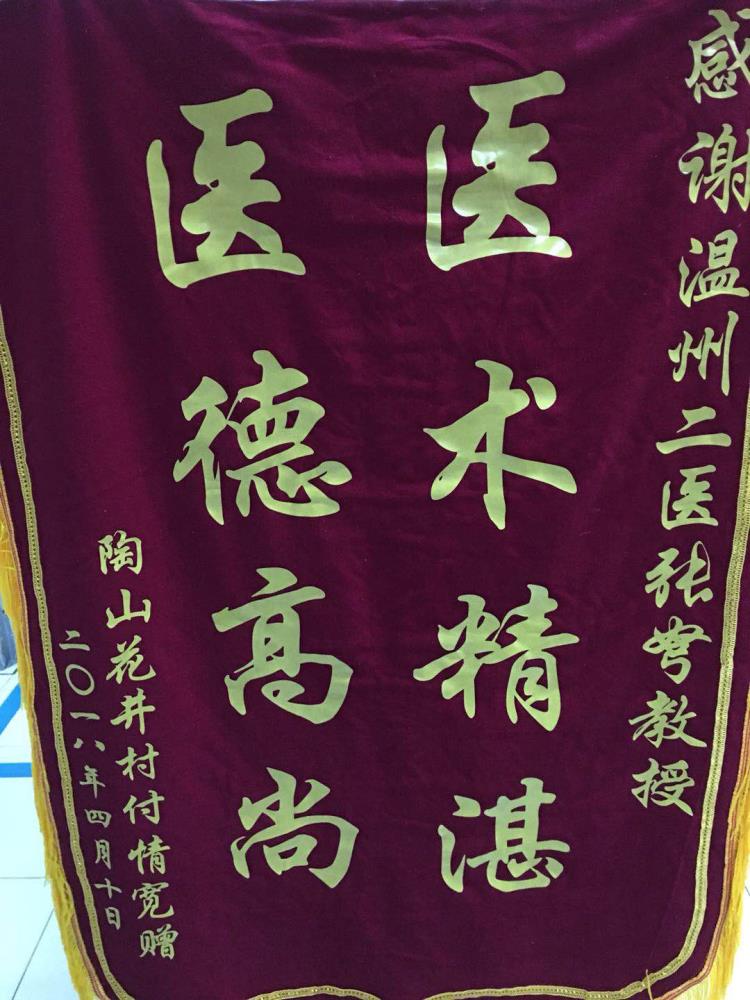 感谢温州二医张弩教授
医术精湛
医德高尚
陶山花井村付情宽赠
二〇一八年四月十日